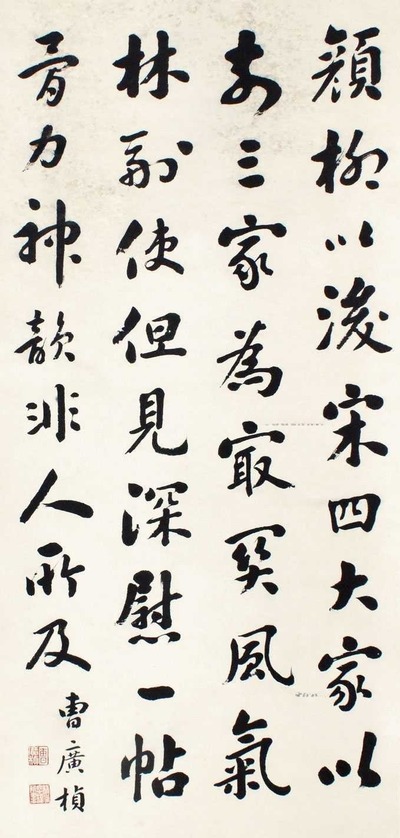 顏柳以後宋四大家以
前三家為冣関風氣
林副使但見深慰一帖
骨力神韻非人所及
曹廣楨